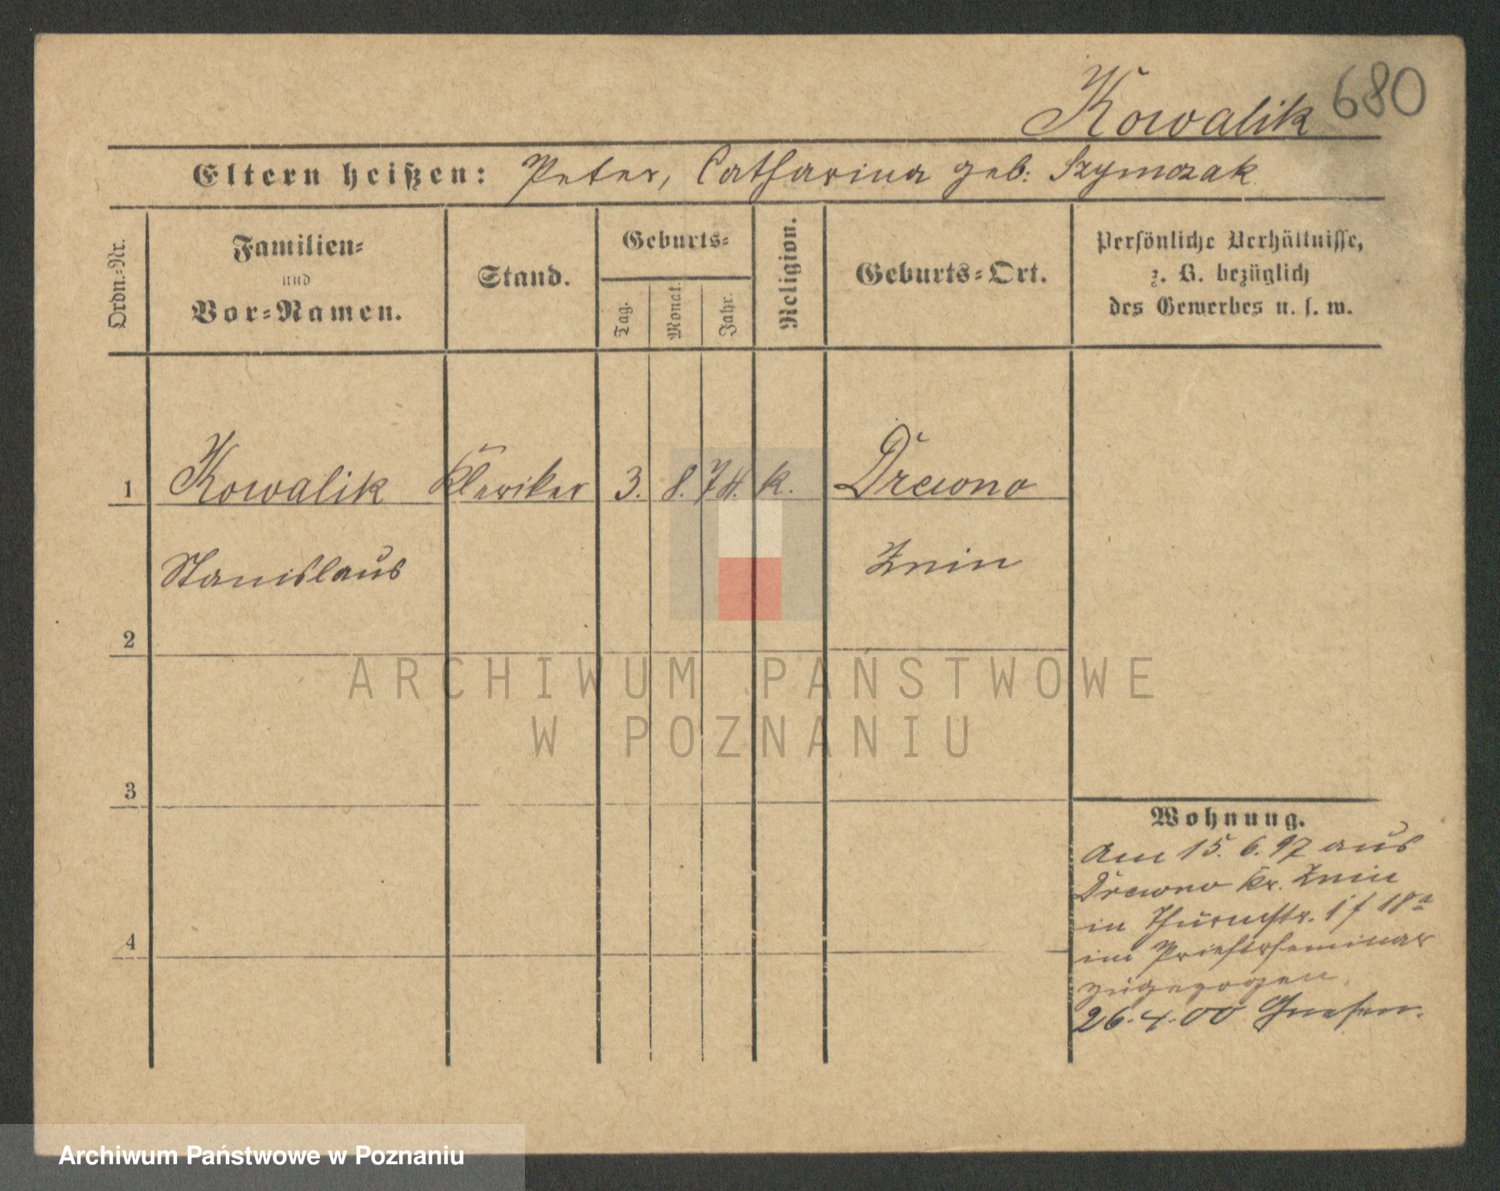 Kowalik 680
Eltern heißen: Peter, Catharina geb: Szymczak
Ordn.-Nr.
Familien-
und
Vor-Namen.
Stand.
Geburts-
Tag.
Monat.
Jahr.
Religion.
Geburts-Ort.
Persönliche Verhältnisse,
z. B. bezüglich
des Gewerbes u. s. w.
1 Kowalik Kleriker 3. 8. 74. k. Drewno
Stanislaus Znin
2
3
4
Wohnung.
Am 15. 6. 97 aus
Drewno Kr. Znin
in Thurmstr. 1 f 18a
im Priesterseminar
zugezogen.
26.4.00 Gnesen.
ARCHIWUM PAŃSTWOWE
W POZNANIU
Archiwum Państwowe w Poznaniu